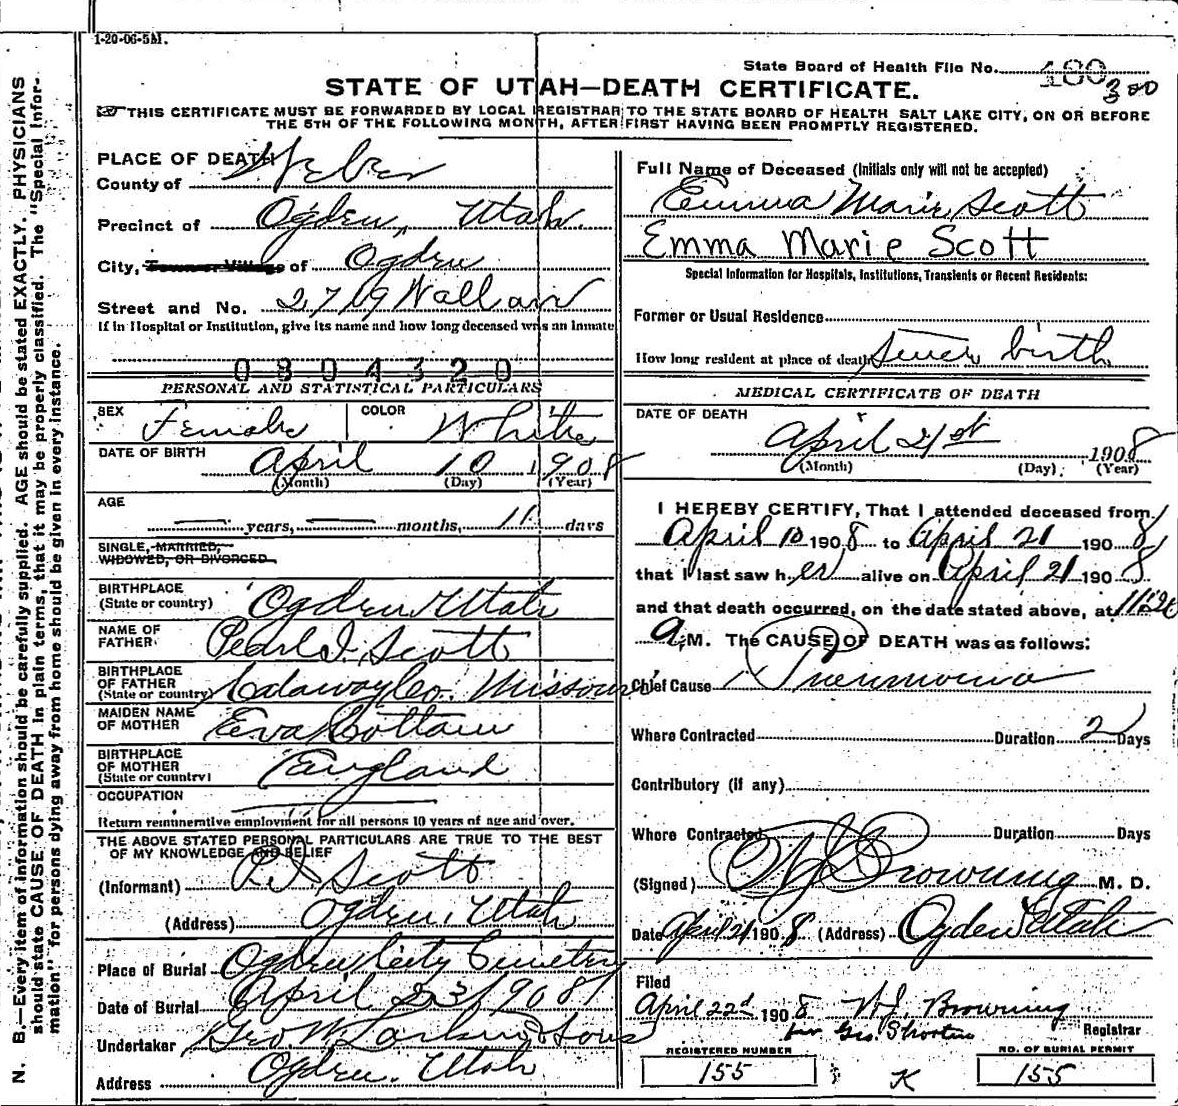 1-20-06-5M.
State Board of Health File No. 180
300
STATE OF UTAH—DEATH CERTIFICATE.
THIS CERTIFICATE MUST BE FORWARDED BY LOCAL REGISTRAR TO THE STATE BOARD OF HEALTH SALT LAKE CITY, ON OR BEFORE
THE 5TH OF THE FOLLOWING MONTH, AFTER FIRST HAVING BEEN PROMPTLY REGISTERED.
PLACE OF DEATH
County of Weber
Precinct of Ogden, Utah.
City, Town or Village of Ogden
Street and No. 2719 Wall av
If in Hospital or Institution, give its name and how long deceased was an inmate
0804320
PERSONAL AND STATISTICAL PARTICULARS
SEX Female COLOR White
DATE OF BIRTH April 10 1908
(Month) (Day) (Year)
AGE
— years, — months, 11 days
SINGLE, MARRIED,
WIDOWED, OR DIVORCED
BIRTHPLACE
(State or country) Ogden Utah
NAME OF
FATHER Pearl I. Scott
BIRTHPLACE
OF FATHER
(State or country) Co. Missouri
MAIDEN NAME
OF MOTHER Eva Cottam
BIRTHPLACE
OF MOTHER
(State or country) England
OCCUPATION
Return remunerative employment for all persons 10 years of age and over.
THE ABOVE STATED PERSONAL PARTICULARS ARE TRUE TO THE BEST
OF MY KNOWLEDGE AND BELIEF
(Informant) P. I. Scott
(Address) Ogden, Utah
Place of Burial Ogden City Cemetery
Date of Burial April 23 1908
Undertaker Geo W. Larkin & Sons
Address Ogden. Utah
Full Name of Deceased (Initials only will not be accepted)
Emma Marie Scott
Emma Marie Scott
Special Information for Hospitals, Institutions, Transients or Recent Residents:
Former or Usual Residence
How long resident at place of death, Since birth
MEDICAL CERTIFICATE OF DEATH
DATE OF DEATH
April 21st 1908
(Month) (Day) (Year)
I HEREBY CERTIFY, That I attended deceased from
April 10 1908 to April 21 1908
that I last saw her alive on April 21 1908
and that death occurred, on the date stated above, at 11:20
A.M. The CAUSE OF DEATH was as follows:
Chief Cause Pneumonia
Where Contracted Duration 2 Days
Contributory (if any)
Where Contracted Duration Days
(Signed) W J Browning M. D.
Date April 21 1908 (Address) Ogden Utah
Filed
April 22d 1908 W. J. Browning
per Geo. Shorten Registrar
REGISTERED NUMBER NO. OF BURIAL PERMIT
155 K 155
N. B.—Every item of information should be carefully supplied. AGE should be stated EXACTLY. PHYSICIANS
should state CAUSE OF DEATH in plain terms, that it may be properly classified. The "Special Infor-
mation" for persons dying away from home should be given in every instance.